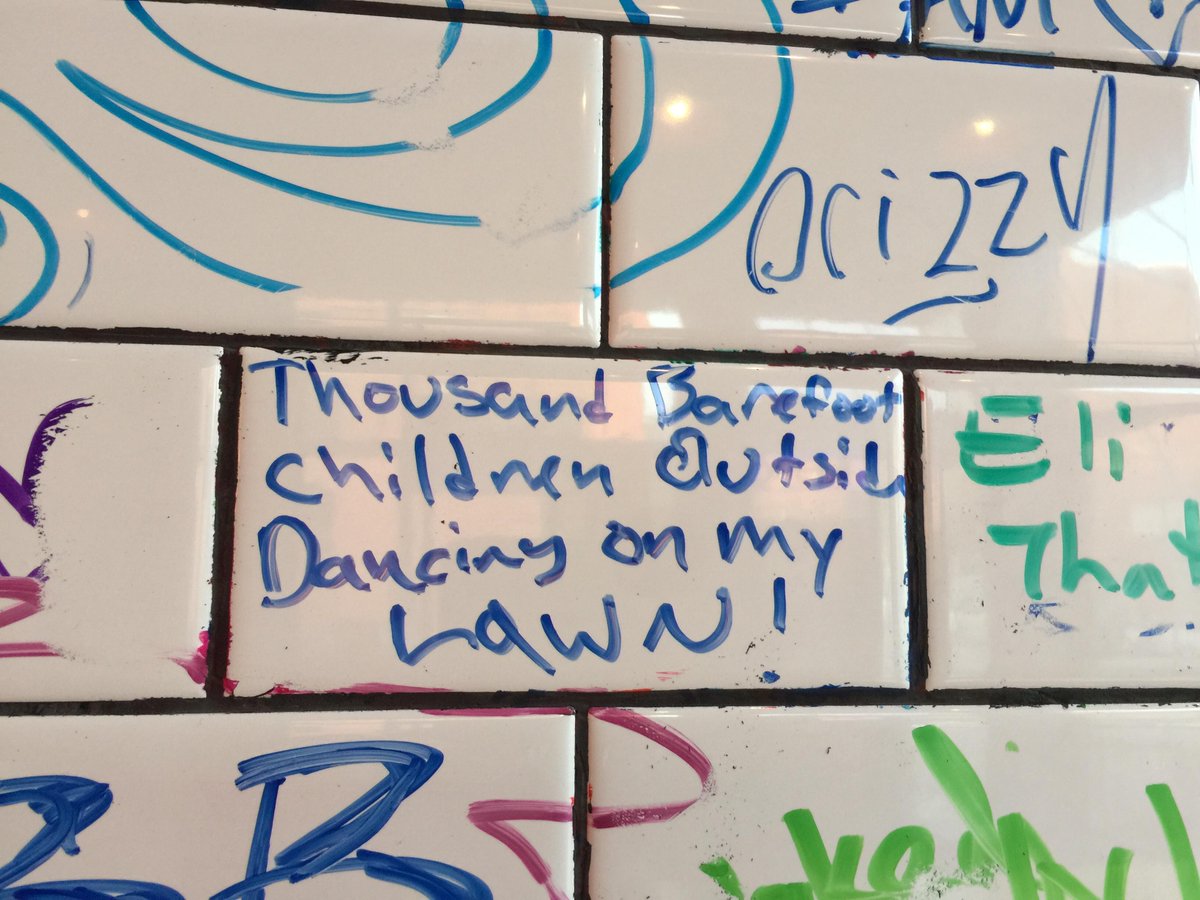 AM
Drizzy
Thousand Barefoot
children Outside
Dancing on my
LAWN!
Eli
That
B B